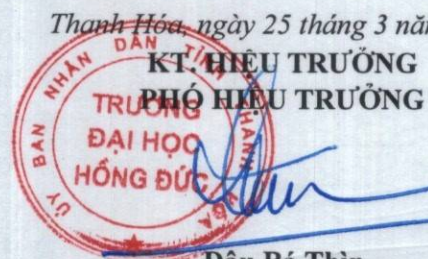 Thanh Hóa, ngày 25 tháng 3 năm
KT. HIỆU TRƯỞNG
PHÓ HIỆU TRƯỞNG
ỦY BAN NHÂN DÂN TỈNH THANH HÓA
TRƯỜNG
ĐẠI HỌC
HỒNG ĐỨC